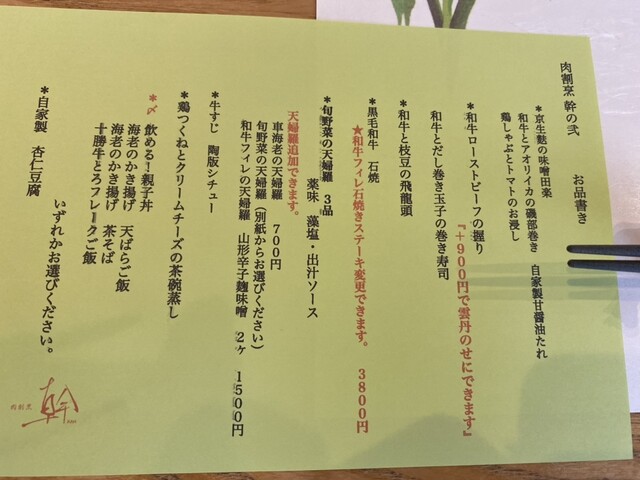 肉割烹 幹の弐
お品書き
*京生麩の味噌田楽
和牛とアオリイカの磯部巻き 自家製甘醤油たれ
鶏しゃぶとトマトのお浸し
*和牛ローストビーフの握り
『+900円で雲丹のせにできます』
和牛とだし巻き玉子の巻き寿司
*和牛と枝豆の飛龍頭
*黒毛和牛 石焼
★和牛フィレ石焼きステーキ変更できます。 3800円
*旬野菜の天婦羅 3品
薬味 藻塩・出汁ソース
天婦羅追加できます。
車海老の天婦羅 700円
旬野菜の天婦羅(別紙からお選びください)
和牛フィレの天婦羅 山形辛子麹味噌 2ヶ 1500円
*牛すじ 陶版シチュー
*鶏つくねとクリームチーズの茶碗蒸し
*〆 飲める!親子丼
海老のかき揚げ 天ばらご飯
海老のかき揚げ 茶そば
十勝牛とろフレークご飯
いずれかお選びください。
*自家製 杏仁豆腐
肉割烹 幹